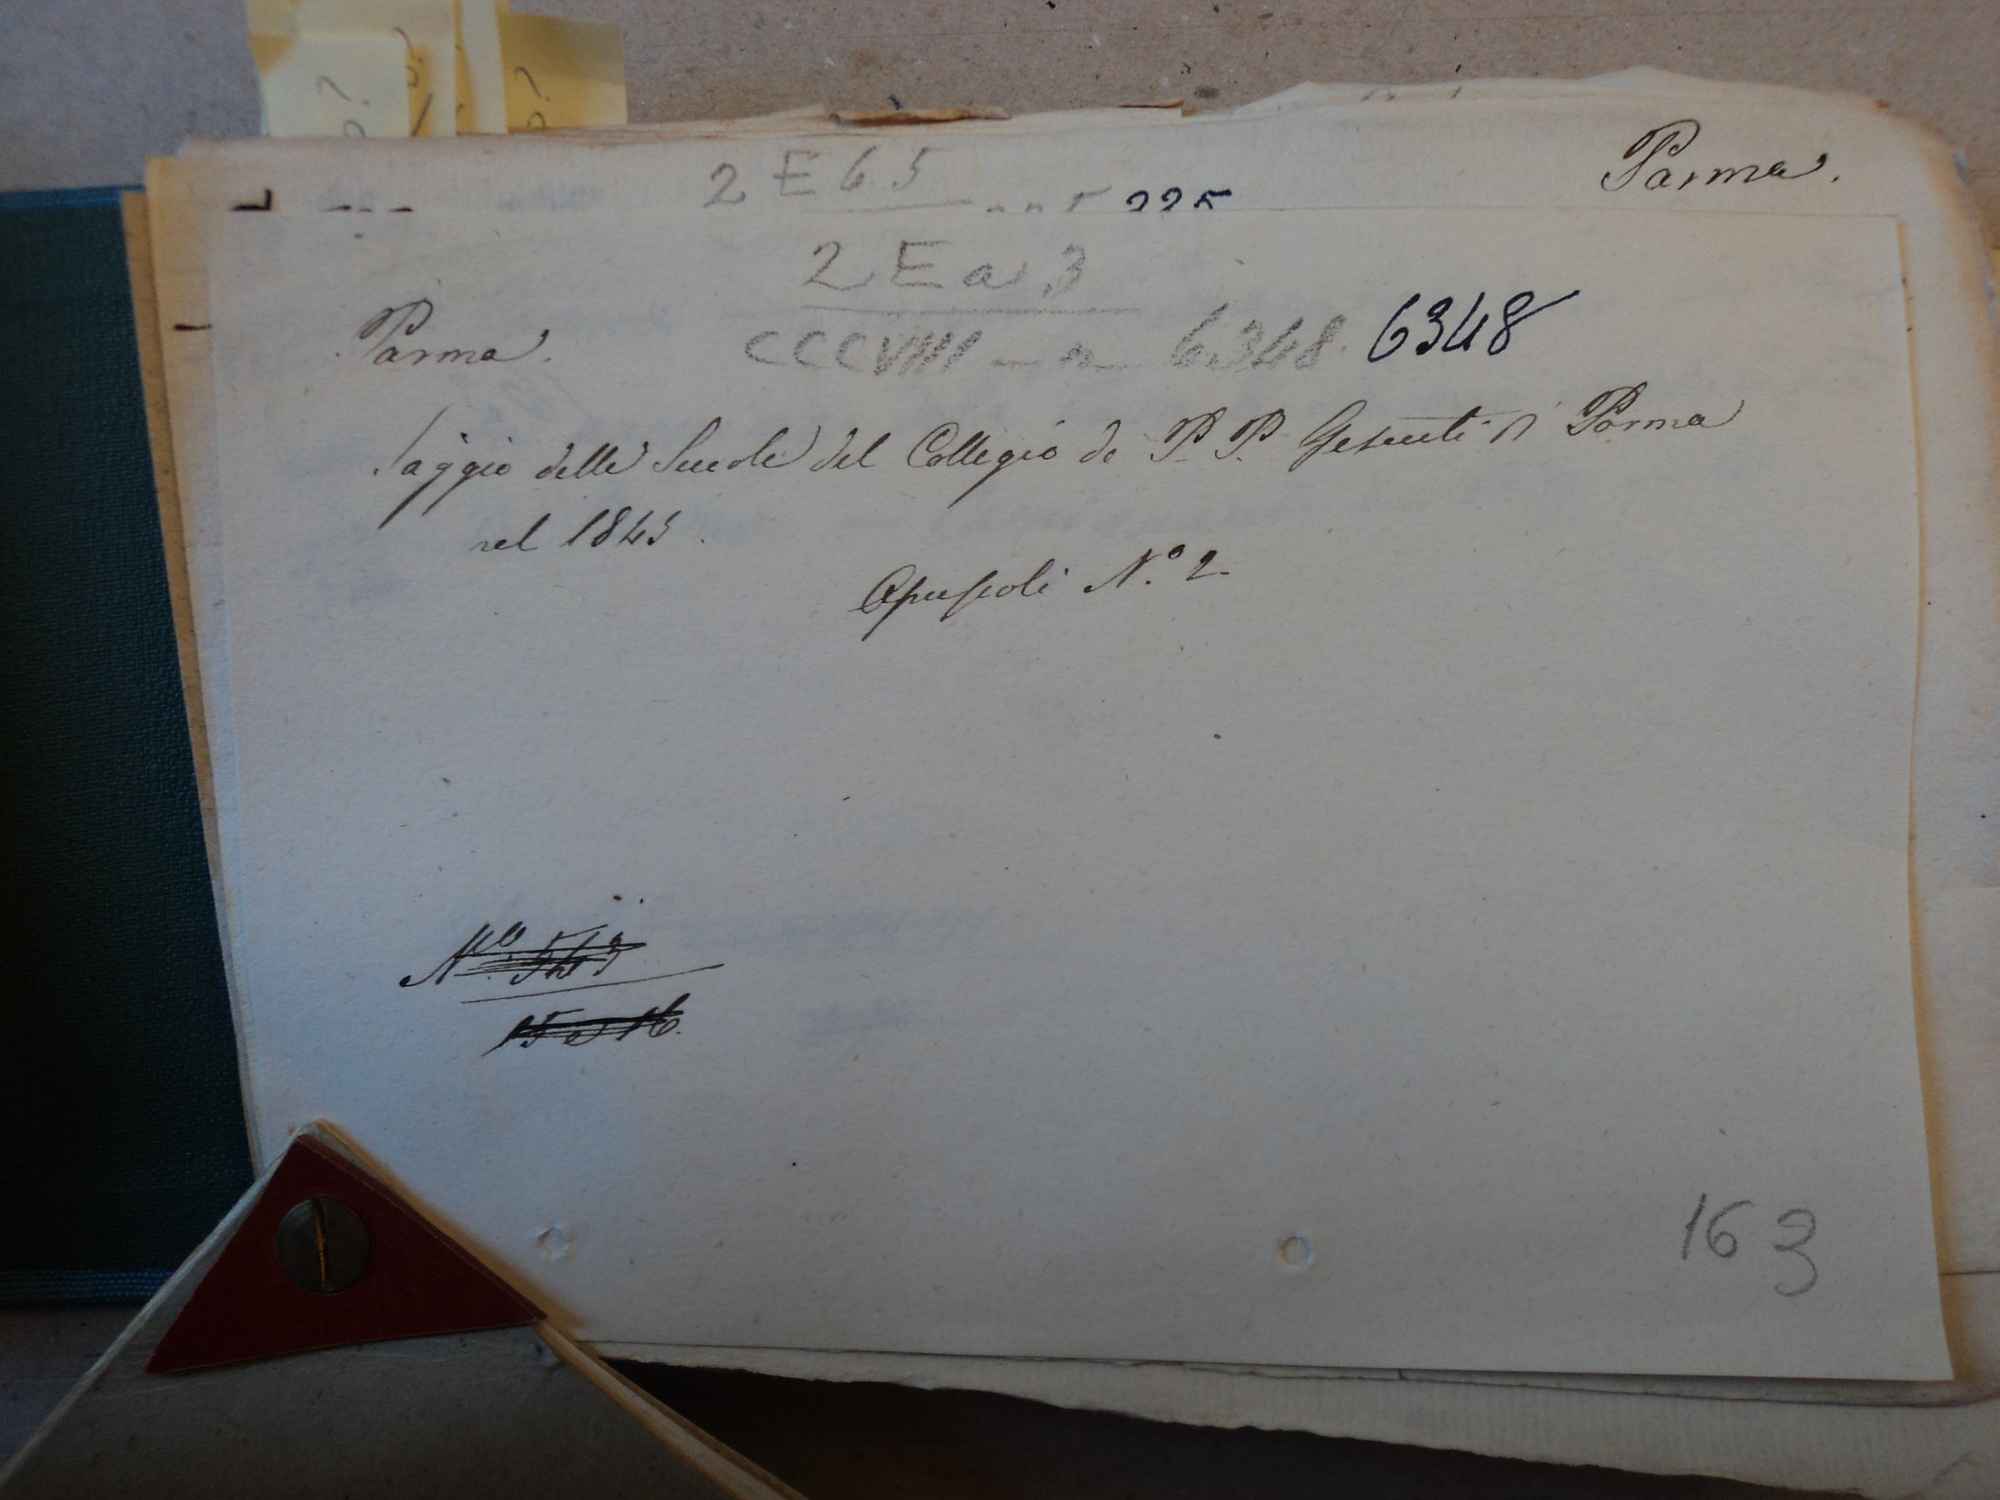 Parma.
2 E 6.5
225
2 E a 3
Parma.
CCCVIII - n 6348. 6348
Saggio delle Scuole del Collegio de P.P. Gesuiti di Parma
nel 1845.
Opuscoli N.º 2.
N.º 543
15 a 16.
163